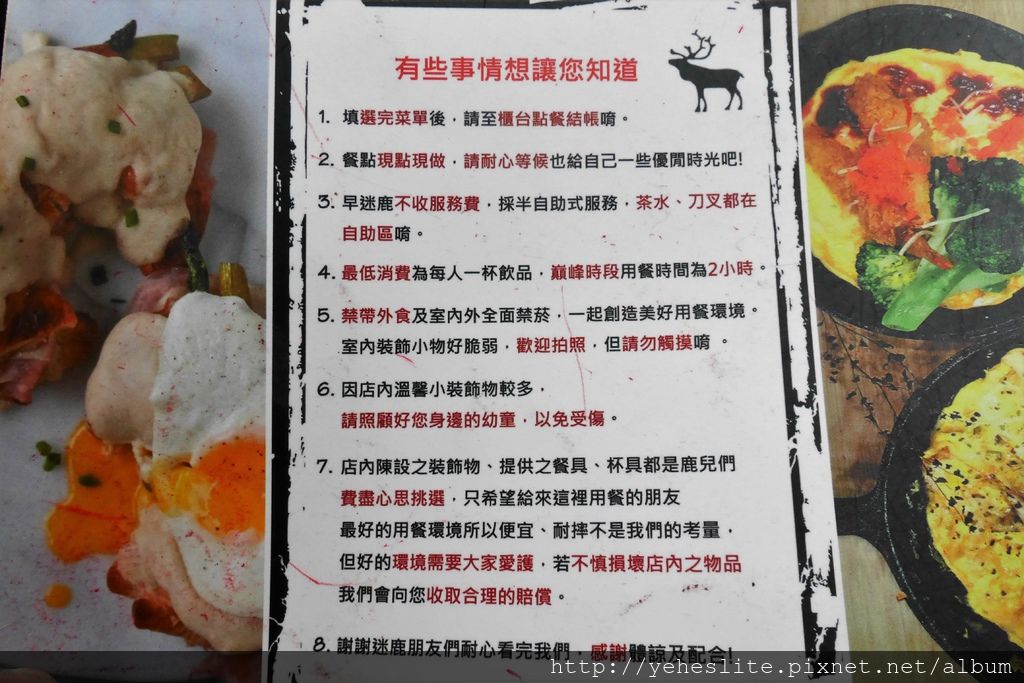 有些事情想讓您知道
1. 填選完菜單後，請至櫃台點餐結帳唷。
2. 餐點現點現做，請耐心等候也給自己一些優閒時光吧!
3. 早迷鹿不收服務費，採半自助式服務，茶水、刀叉都在
自助區唷。
4. 最低消費為每人一杯飲品，巔峰時段用餐時間為2小時。
5. 禁帶外食及室內外全面禁菸，一起創造美好用餐環境。
室內裝飾小物好脆弱，歡迎拍照，但請勿觸摸唷。
6. 因店內溫馨小裝飾物較多，
請照顧好您身邊的幼童，以免受傷。
7. 店內陳設之裝飾物、提供之餐具、杯具都是鹿兒們
費盡心思挑選，只希望給來這裡用餐的朋友
最好的用餐環境所以便宜、耐摔不是我們的考量，
但好的環境需要大家愛護，若不慎損壞店內之物品
我們會向您收取合理的賠償。
8. 謝謝迷鹿朋友們耐心看完我們，感謝體諒及配合!
http://yeheslite.pixnet.net/album